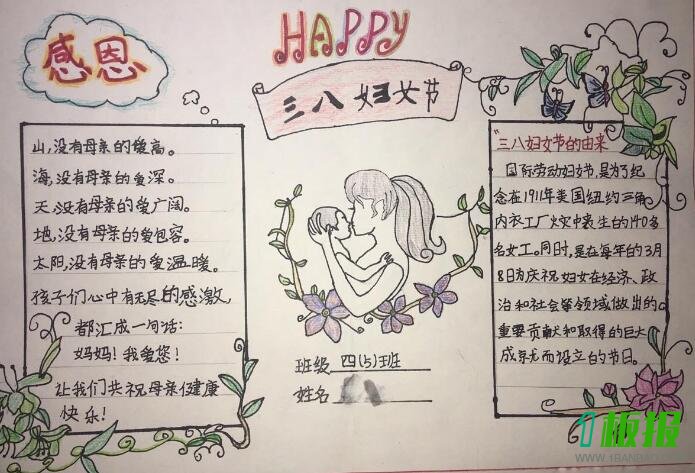 感恩
HAPPY
三八妇女节
山,没有母亲的爱高。
海,没有母亲的爱深。
天,没有母亲的爱广阔。
地,没有母亲的爱包容。
太阳,没有母亲的爱温暖。
孩子们心中有无尽的感激,
都汇成一句话:
妈妈!我爱您!
让我们共祝母亲健康
快乐!
班级 四(5)班
姓名
"三八妇女节的由来
国际劳动妇女节,是为了纪
念在1911年美国纽约三角
内衣工厂火灾中丧生的140多
名女工。同时,是在每年的3月
8日为庆祝妇女在经济、政
治和社会等领域做出的
重要贡献和取得的巨大
成就而设立的节日。
板报
WWW.1BANBAO.COM